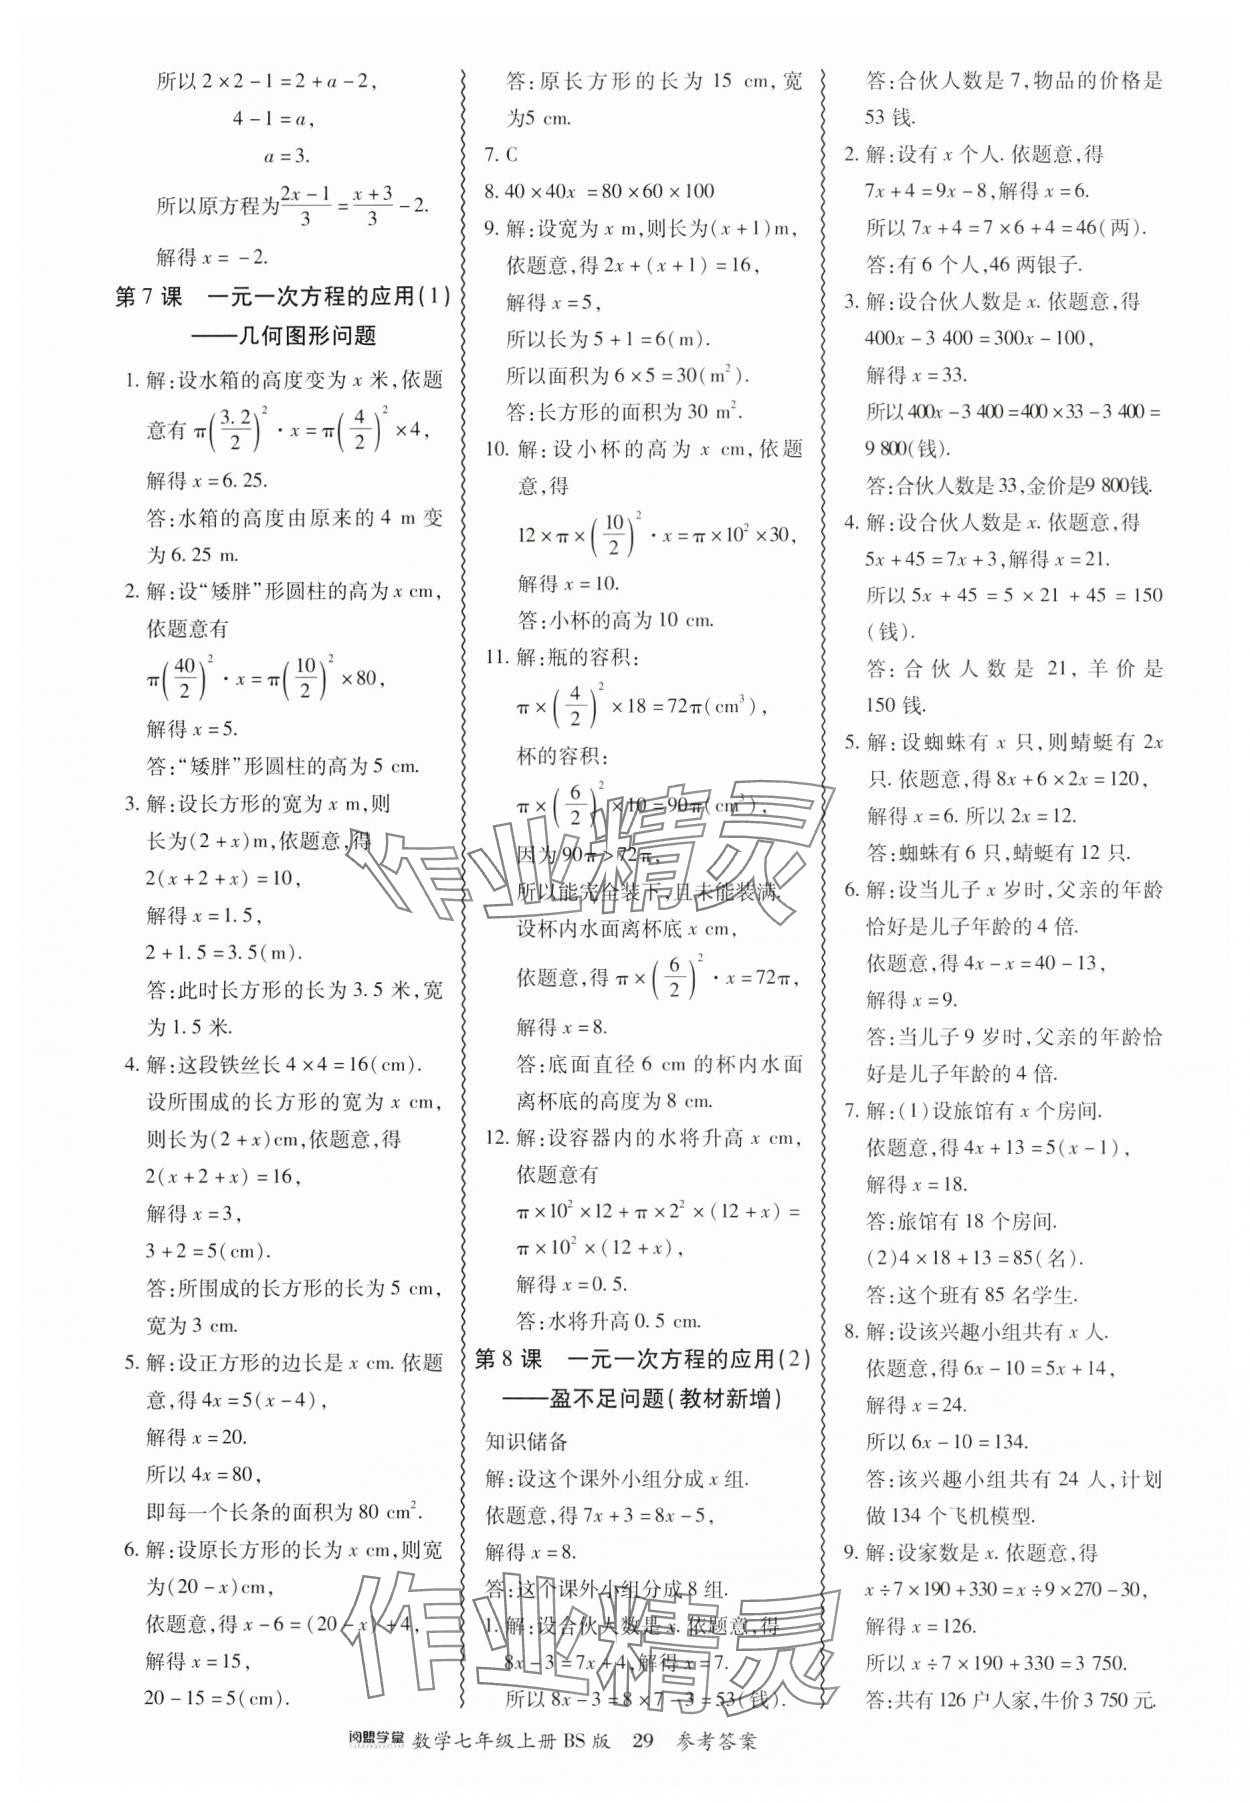 所以2×2-1=2+a-2,
4-1=a,
a=3.
所以原方程为\frac{2x-1}{3}=\frac{x+3}{3}-2.
解得x=-2.
第7课 一元一次方程的应用(1)
——几何图形问题
1. 解:设水箱的高度变为x米,依题
意有π(\frac{3.2}{2})²·x=π(\frac{4}{2})²×4,
解得x=6.25.
答:水箱的高度由原来的4 m变
为6.25 m.
2. 解:设“矮胖”形圆柱的高为x cm,
依题意有
π(\frac{40}{2})²·x=π(\frac{10}{2})²×80,
解得x=5.
答:“矮胖”形圆柱的高为5 cm.
3. 解:设长方形的宽为x m,则
长为(2+x)m,依题意,得
2(x+2+x)=10,
解得x=1.5,
2+1.5=3.5(m).
答:此时长方形的长为3.5米,宽
为1.5米.
4. 解:这段铁丝长4×4=16(cm).
设所围成的长方形的宽为x cm,
则长为(2+x)cm,依题意,得
2(x+2+x)=16,
解得x=3,
3+2=5(cm).
答:所围成的长方形的长为5 cm,
宽为3 cm.
5. 解:设正方形的边长是x cm.依题
意,得4x=5(x-4),
解得x=20.
所以4x=80,
即每一个长条的面积为80 cm².
6. 解:设原长方形的长为x cm,则宽
为(20-x)cm,
依题意,得x-6=(20-x)+4,
解得x=15,
20-15=5(cm).
答:原长方形的长为15 cm,宽
为5 cm.
7. C
8. 40×40x=80×60×100
9. 解:设宽为x m,则长为(x+1)m,
依题意,得2x+(x+1)=16,
解得x=5,
所以长为5+1=6(m).
所以面积为6×5=30(m²).
答:长方形的面积为30 m².
10. 解:设小杯的高为x cm,依题
意,得
12×π×(\frac{10}{2})²·x=π×10²×30,
解得x=10.
答:小杯的高为10 cm.
11. 解:瓶的容积:
π×(\frac{4}{2})²×18=72π(cm³),
杯的容积:
π×(\frac{6}{2})²×10=90π(cm³),
因为90π>72π,
所以能完全装下,且未能装满.
设杯内水面离杯底x cm,
依题意,得π×(\frac{6}{2})²·x=72π,
解得x=8.
答:底面直径6 cm的杯内水面
离杯底的高度为8 cm.
12. 解:设容器内的水将升高x cm,
依题意有
π×10²×12+π×2²×(12+x)=
π×10²×(12+x),
解得x=0.5.
答:水将升高0.5 cm.
第8课 一元一次方程的应用(2)
——盈不足问题(教材新增)
知识储备
解:设这个课外小组分成x组.
依题意,得7x+3=8x-5,
解得x=8.
答:这个课外小组分成8组.
1. 解:设合伙人数是x.依题意,得
8x-3=7x+4,解得x=7.
所以8x-3=8×7-3=53(钱).
答:合伙人数是7,物品的价格是
53钱.
2. 解:设有x个人.依题意,得
7x+4=9x-8,解得x=6.
所以7x+4=7×6+4=46(两).
答:有6个人,46两银子.
3. 解:设合伙人数是x.依题意,得
400x-3 400=300x-100,
解得x=33.
所以400x-3 400=400×33-3 400=
9 800(钱).
答:合伙人数是33,金价是9 800钱.
4. 解:设合伙人数是x.依题意,得
5x+45=7x+3,解得x=21.
所以5x+45=5×21+45=150
(钱).
答:合伙人数是21,羊价是
150钱.
5. 解:设蜘蛛有x只,则蜻蜓有2x
只.依题意,得8x+6×2x=120,
解得x=6.所以2x=12.
答:蜘蛛有6只,蜻蜓有12只.
6. 解:设当儿子x岁时,父亲的年龄
恰好是儿子年龄的4倍.
依题意,得4x-x=40-13,
解得x=9.
答:当儿子9岁时,父亲的年龄恰
好是儿子年龄的4倍.
7. 解:(1)设旅馆有x个房间.
依题意,得4x+13=5(x-1),
解得x=18.
答:旅馆有18个房间.
(2)4×18+13=85(名).
答:这个班有85名学生.
8. 解:设该兴趣小组共有x人.
依题意,得6x-10=5x+14,
解得x=24.
所以6x-10=134.
答:该兴趣小组共有24人,计划
做134个飞机模型.
9. 解:设家数是x.依题意,得
x÷7×190+330=x÷9×270-30,
解得x=126.
所以x÷7×190+330=3 750.
答:共有126户人家,牛价3 750元.
作业精灵
作业精灵
阅盟学堂 数学七年级上册BS版 29 参考答案